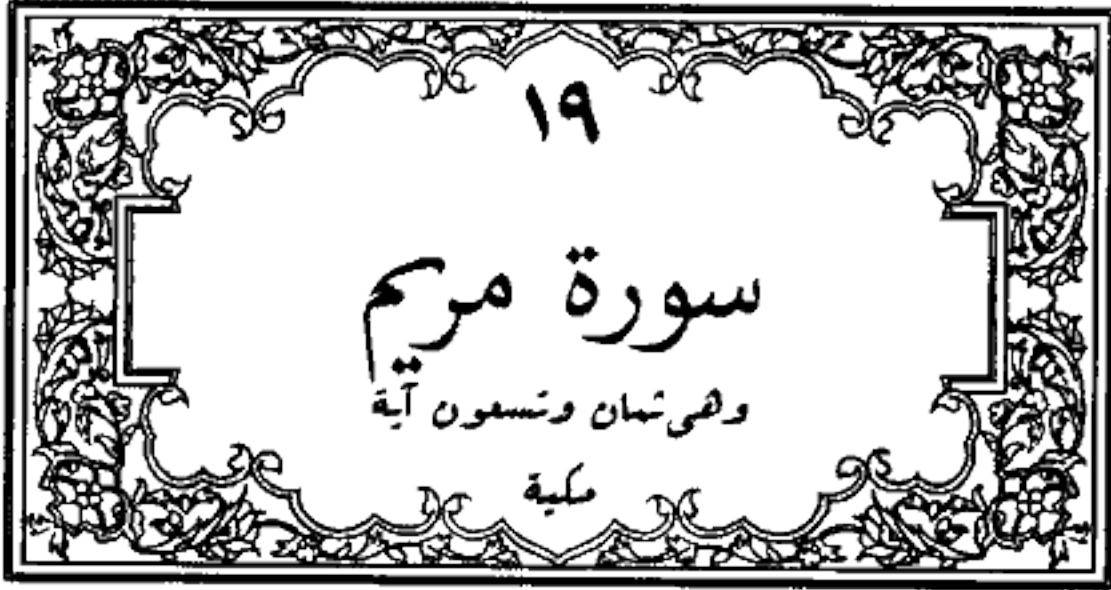 ١٩
سورة مريم
وهى ثمان وتسعون آية
مكية